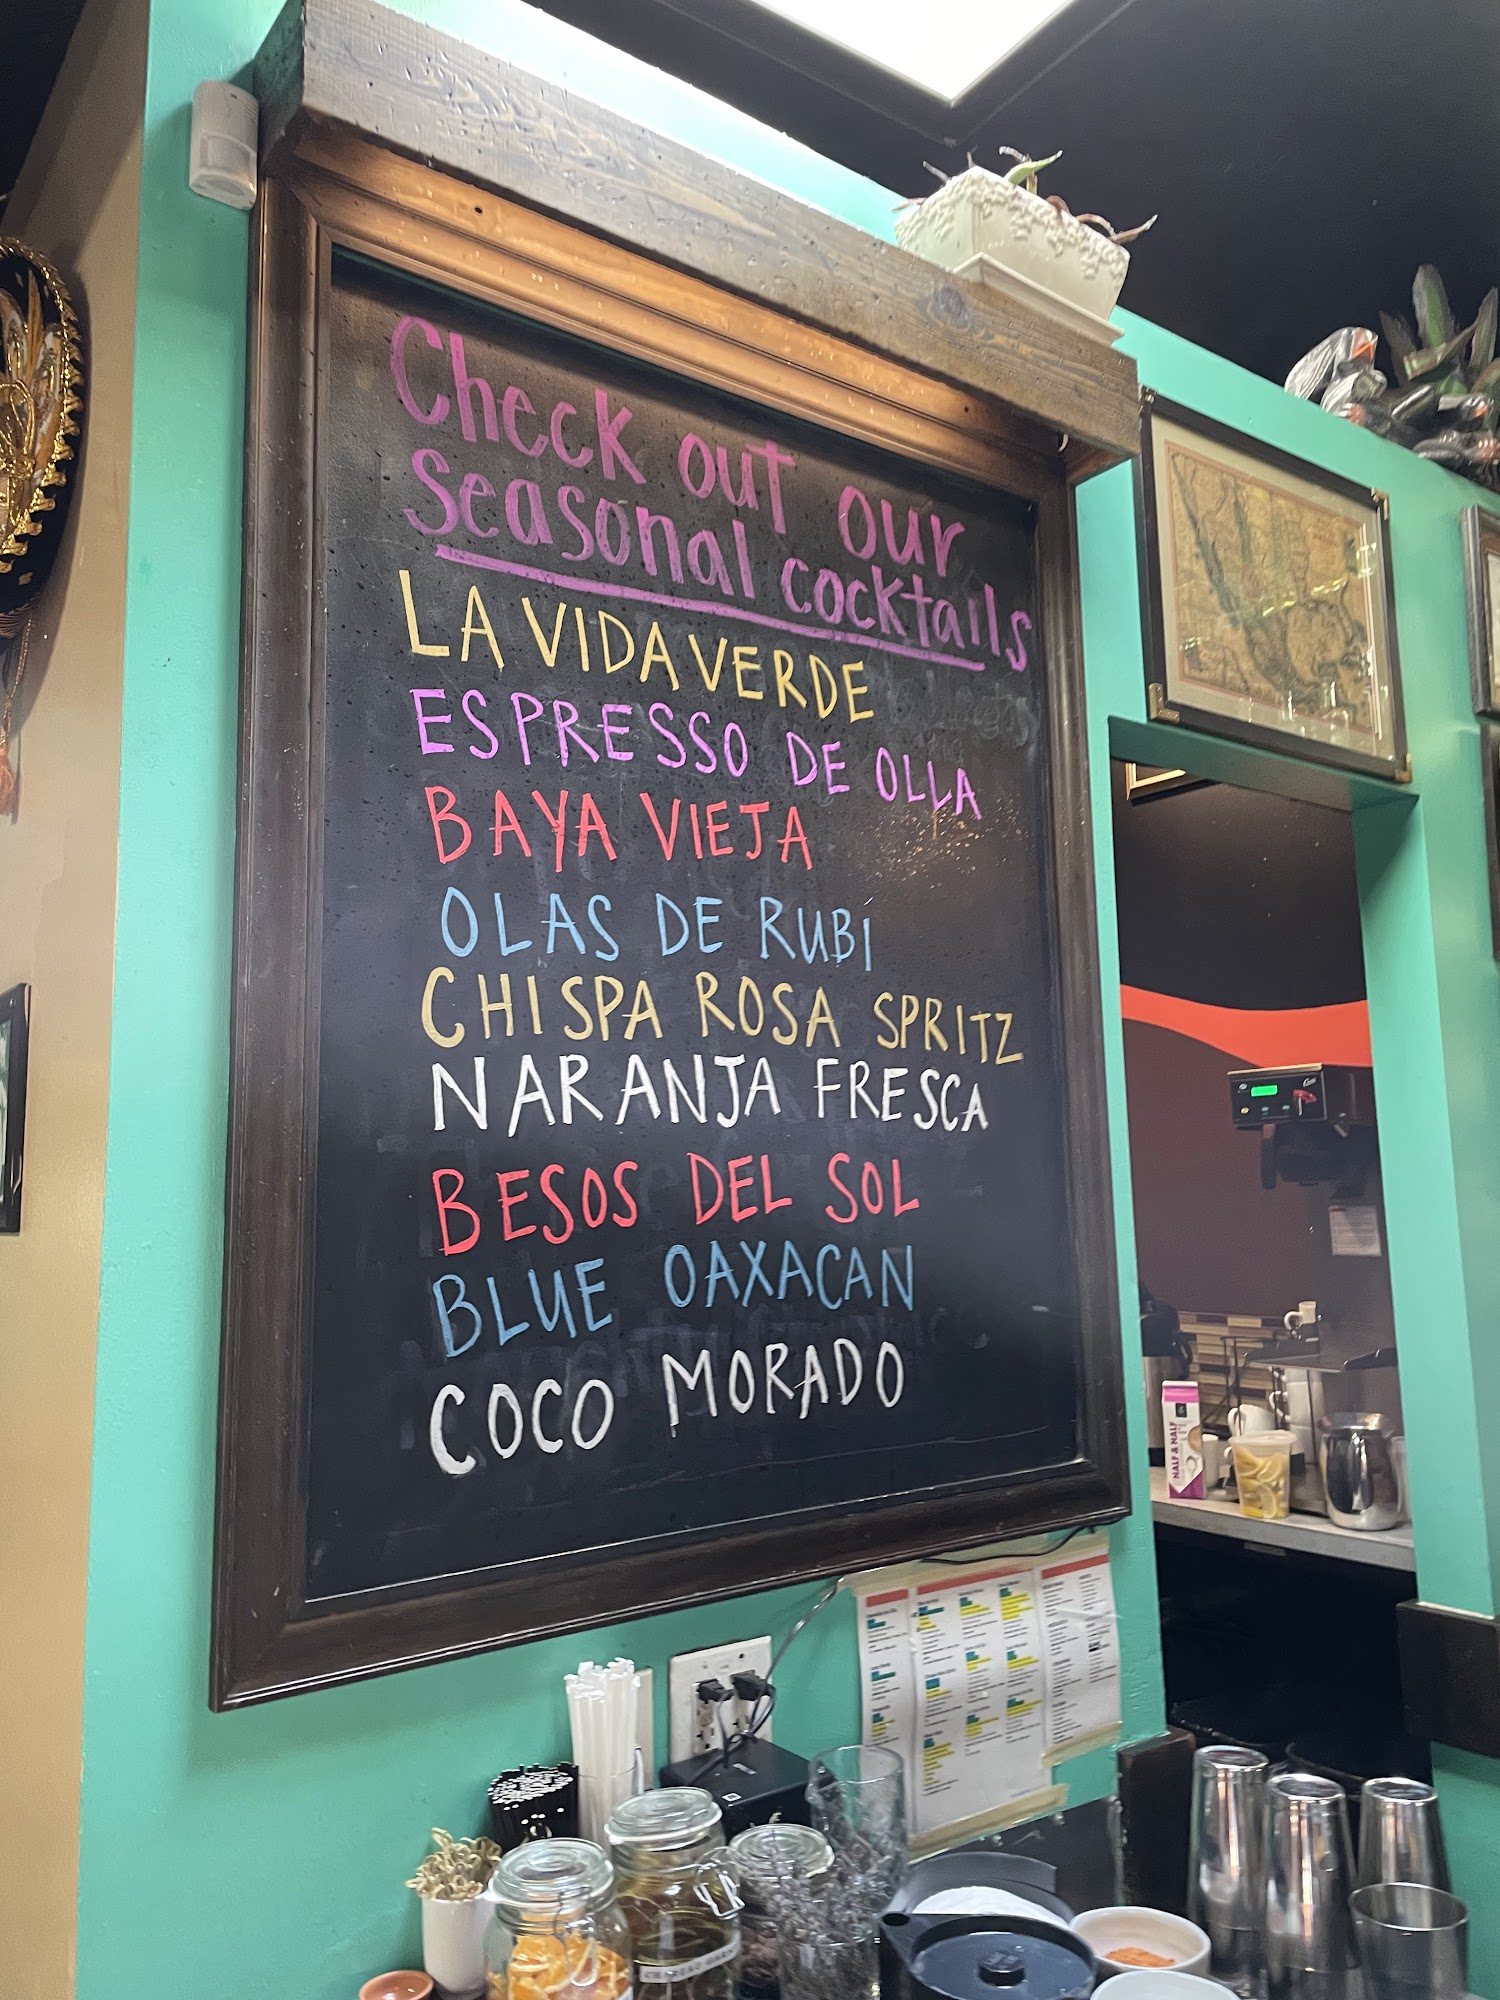 Check out our
seasonal cocktails
LA VIDA VERDE
ESPRESSO DE OLLA
BAYA VIEJA
OLAS DE RUBÍ
CHISPA ROSA SPRITZ
NARANJA FRESCA
BESOS DEL SOL
BLUE OAXACAN
COCO MORADO
HALF & HALF